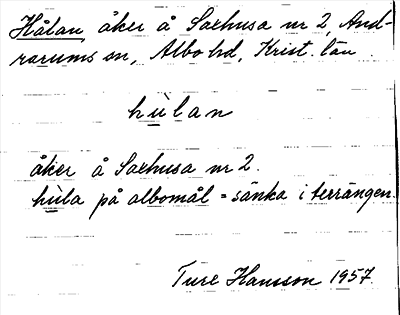 Hålan, åker å Saxhusa nr 2, And-
rarums sn, Albo hd, Krist. län
hùlan
åker å Saxhusa nr 2.
hùla på albomål = sänka i terrängen.
Ture Hansson 1957.